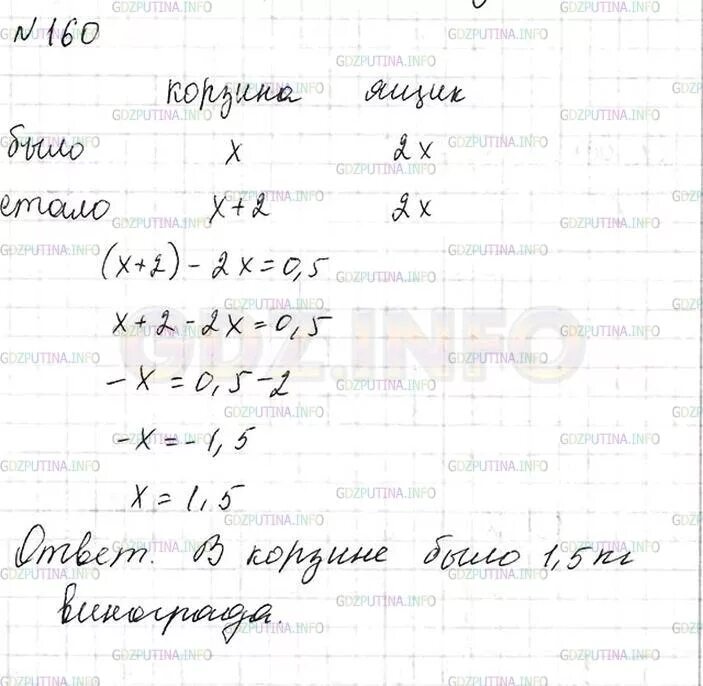 №160
корзина ящик
было x 2x
стало x+2 2x
(x+2)-2x=0,5
x+2-2x=0,5
-x=0,5-2
-x=-1,5
x=1,5
Ответ. В корзине было 1,5кг
винограда.
GDZ.INFO
GDZPUTINA.INFO